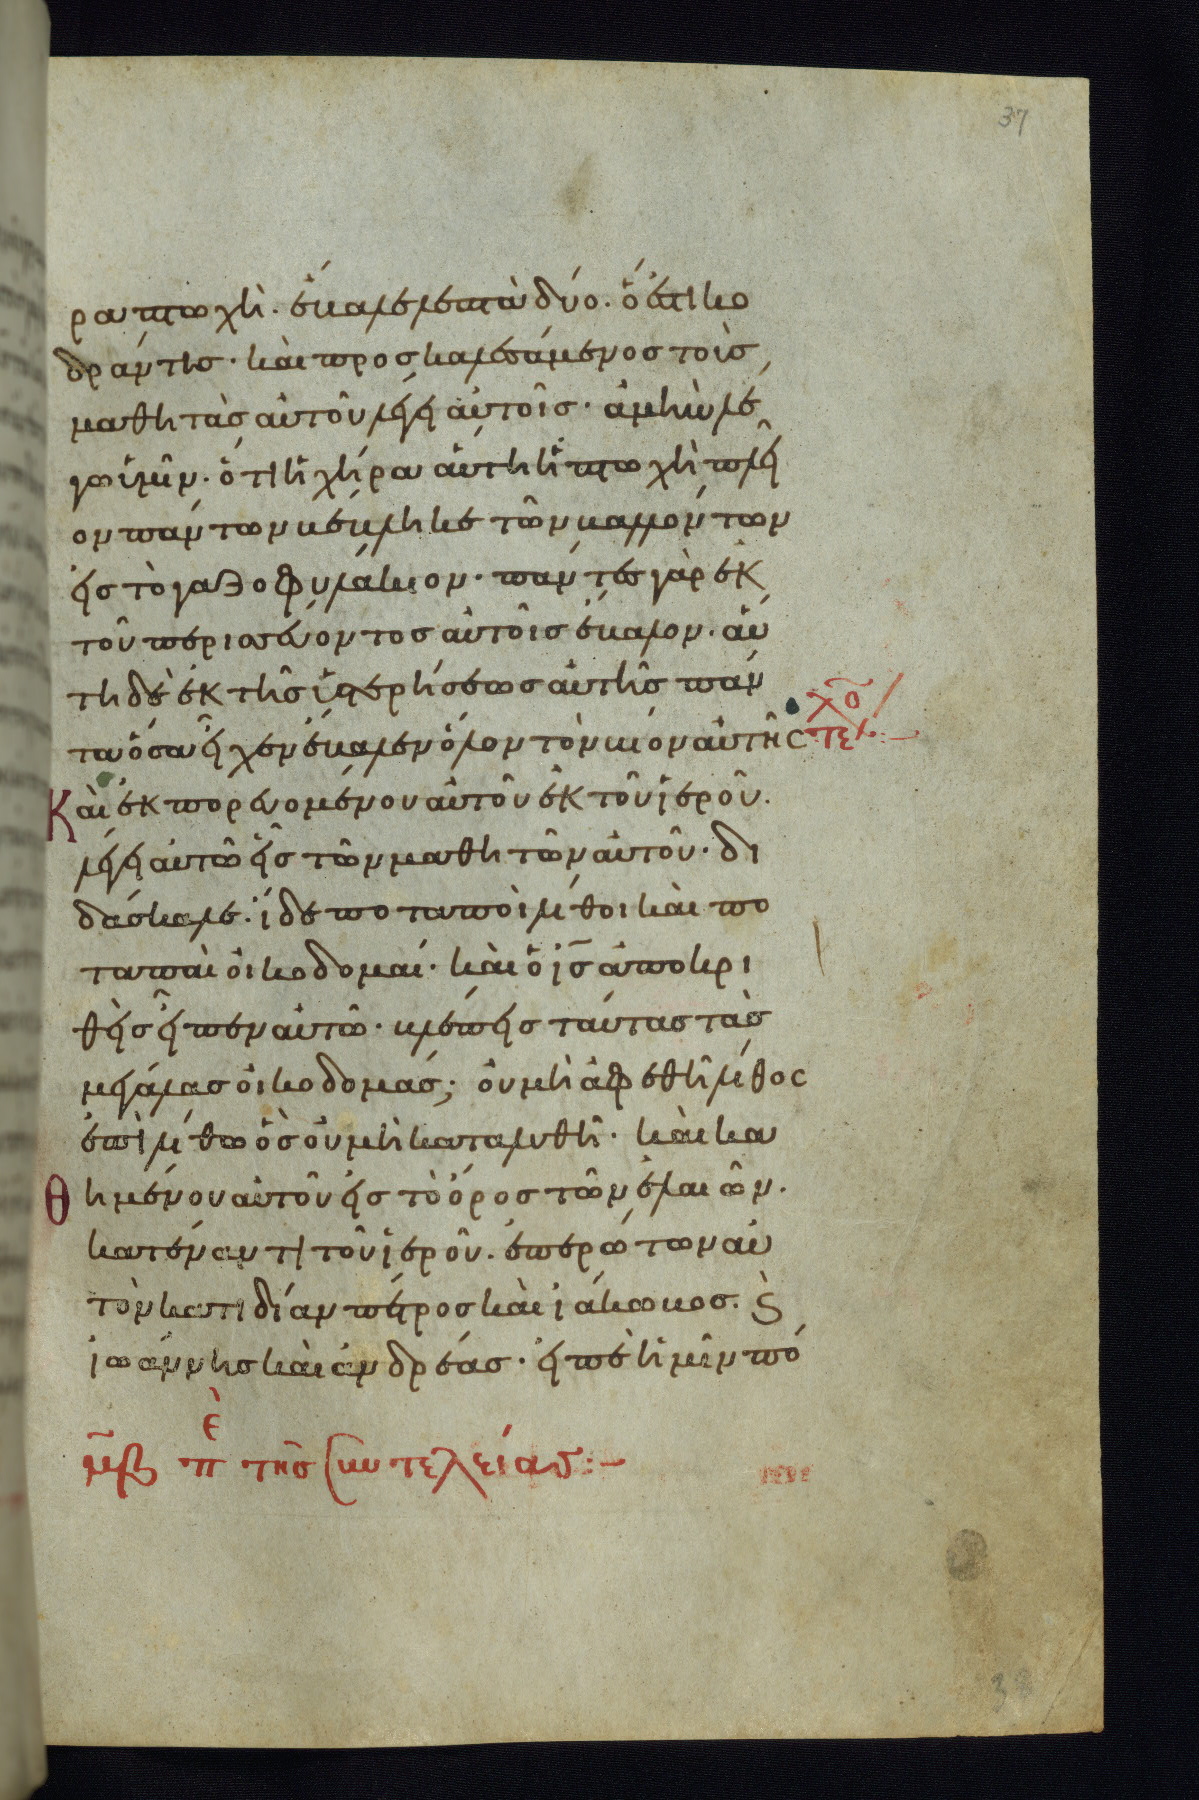 37
ρα πτωχὴ. ἔβαλε λεπτὰ δύο. ὅ ἐστι κο
δράντης· καὶ προσκαλεσάμενος τοὺς
μαθητὰς αὐτοῦ λέγει αὐτοῖς· ἀμὴν λέ
γω ὑμῖν. ὅτι ἡ χήρα αὕτη ἡ πτωχὴ πλεῖ
ον πάντων βέβληκε τῶν βαλλόντων
εἰς τὸ γαζοφυλάκιον· πάντες γὰρ ἐκ
τοῦ περισσεύοντος αὐτοῖς ἔβαλον. αὕ
τη δὲ ἐκ τῆς ὑστερήσεως αὐτῆς πάν
τα ὅσα εἶχεν ἔβαλεν ὅλον τὸν βίον αὐτῆς
τελ
Καὶ ἐκπορευομένου αὐτοῦ ἐκ τοῦ ἱεροῦ.
λέγει αὐτῶ εἷς τῶν μαθητῶν αὐτοῦ· δι
δάσκαλε. ἴδε ποταποὶ λίθοι καὶ πο
ταπαὶ οἰκοδομαί· καὶ ὁ ις ἀποκρι
θεὶς εἶπεν αὐτῶ· βλέπεις ταύτας τὰς
μεγάλας οἰκοδομάς; οὐ μὴ ἀφεθῆ λίθος
ἐπὶ λίθω ὃς οὐ μὴ καταλυθῆ· καὶ κα
θημένου αὐτοῦ εἰς τὸ ὄρος τῶν ἐλαιῶν.
κατέναντι τοῦ ἱεροῦ. ἐπερώτων αὐ
τὸν κατιδίαν πέτρος καὶ ἰάκωβος. ϗ
ἰωάννης καὶ ἀνδρέας· εἰπὲ ἡμῖν πό
μβ πε τῆς συντελείας:–
38